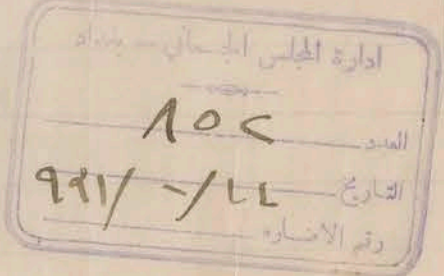 ادارة المجلس الجسماني - بغداد
العدد ٨٥٢
التاريخ
رقم الاضباره